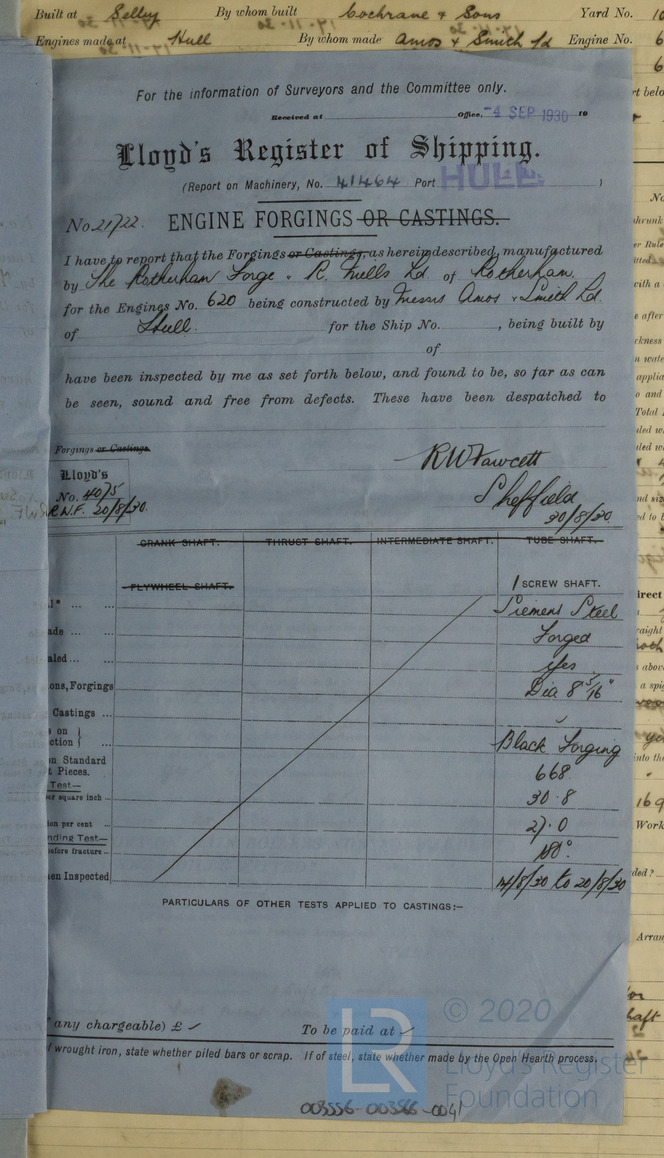 Built at Selby By whom built Cochrane & Sons Yard No.
Engines made at Hull By whom made Amos & Smith Ld Engine No. 6
For the information of Surveyors and the Committee only.
Received at Office, -4 SEP 1930 19
Lloyd's Register of Shipping.
(Report on Machinery, No. 41464 Port HULL. )
No 21722. ENGINE FORGINGS OR CASTINGS.
I have to report that the Forgings or Castings, as herein described, manufactured
by The Rotherham Forge & R. Mills Ld of Rotherham
for the Engines No. 620 being constructed by Messrs Amos & Smith Ld.
of Hull. for the Ship No. , being built by
of
have been inspected by me as set forth below, and found to be, so far as can
be seen, sound and free from defects. These have been despatched to
Forgings or Castings
RW Fawcett
Lloyd's
No. 4075
R.W.F. 20/8/30.
Sheffield
30/8/30
CRANK SHAFT. THRUST SHAFT. INTERMEDIATE SHAFT. TUBE SHAFT.
FLYWHEEL SHAFT. 1 SCREW SHAFT.
Siemens Steel
ade ... Forged
aled ... yes
ons, Forgings Dia 8 5/16"
Castings ...
s on
ction Black Forging
n Standard
t Pieces. 668
Test—
er square inch 30.8
ion per cent 27.0
nding Test—
before fracture 180°.
en Inspected 14/8/30 to 20/8/30
PARTICULARS OF OTHER TESTS APPLIED TO CASTINGS:—
any chargeable) £ To be paid at
f wrought iron, state whether piled bars or scrap. If of steel, state whether made by the Open Hearth process.
© 2020
LR
Lloyd's Register
Foundation
003556-003566-0041